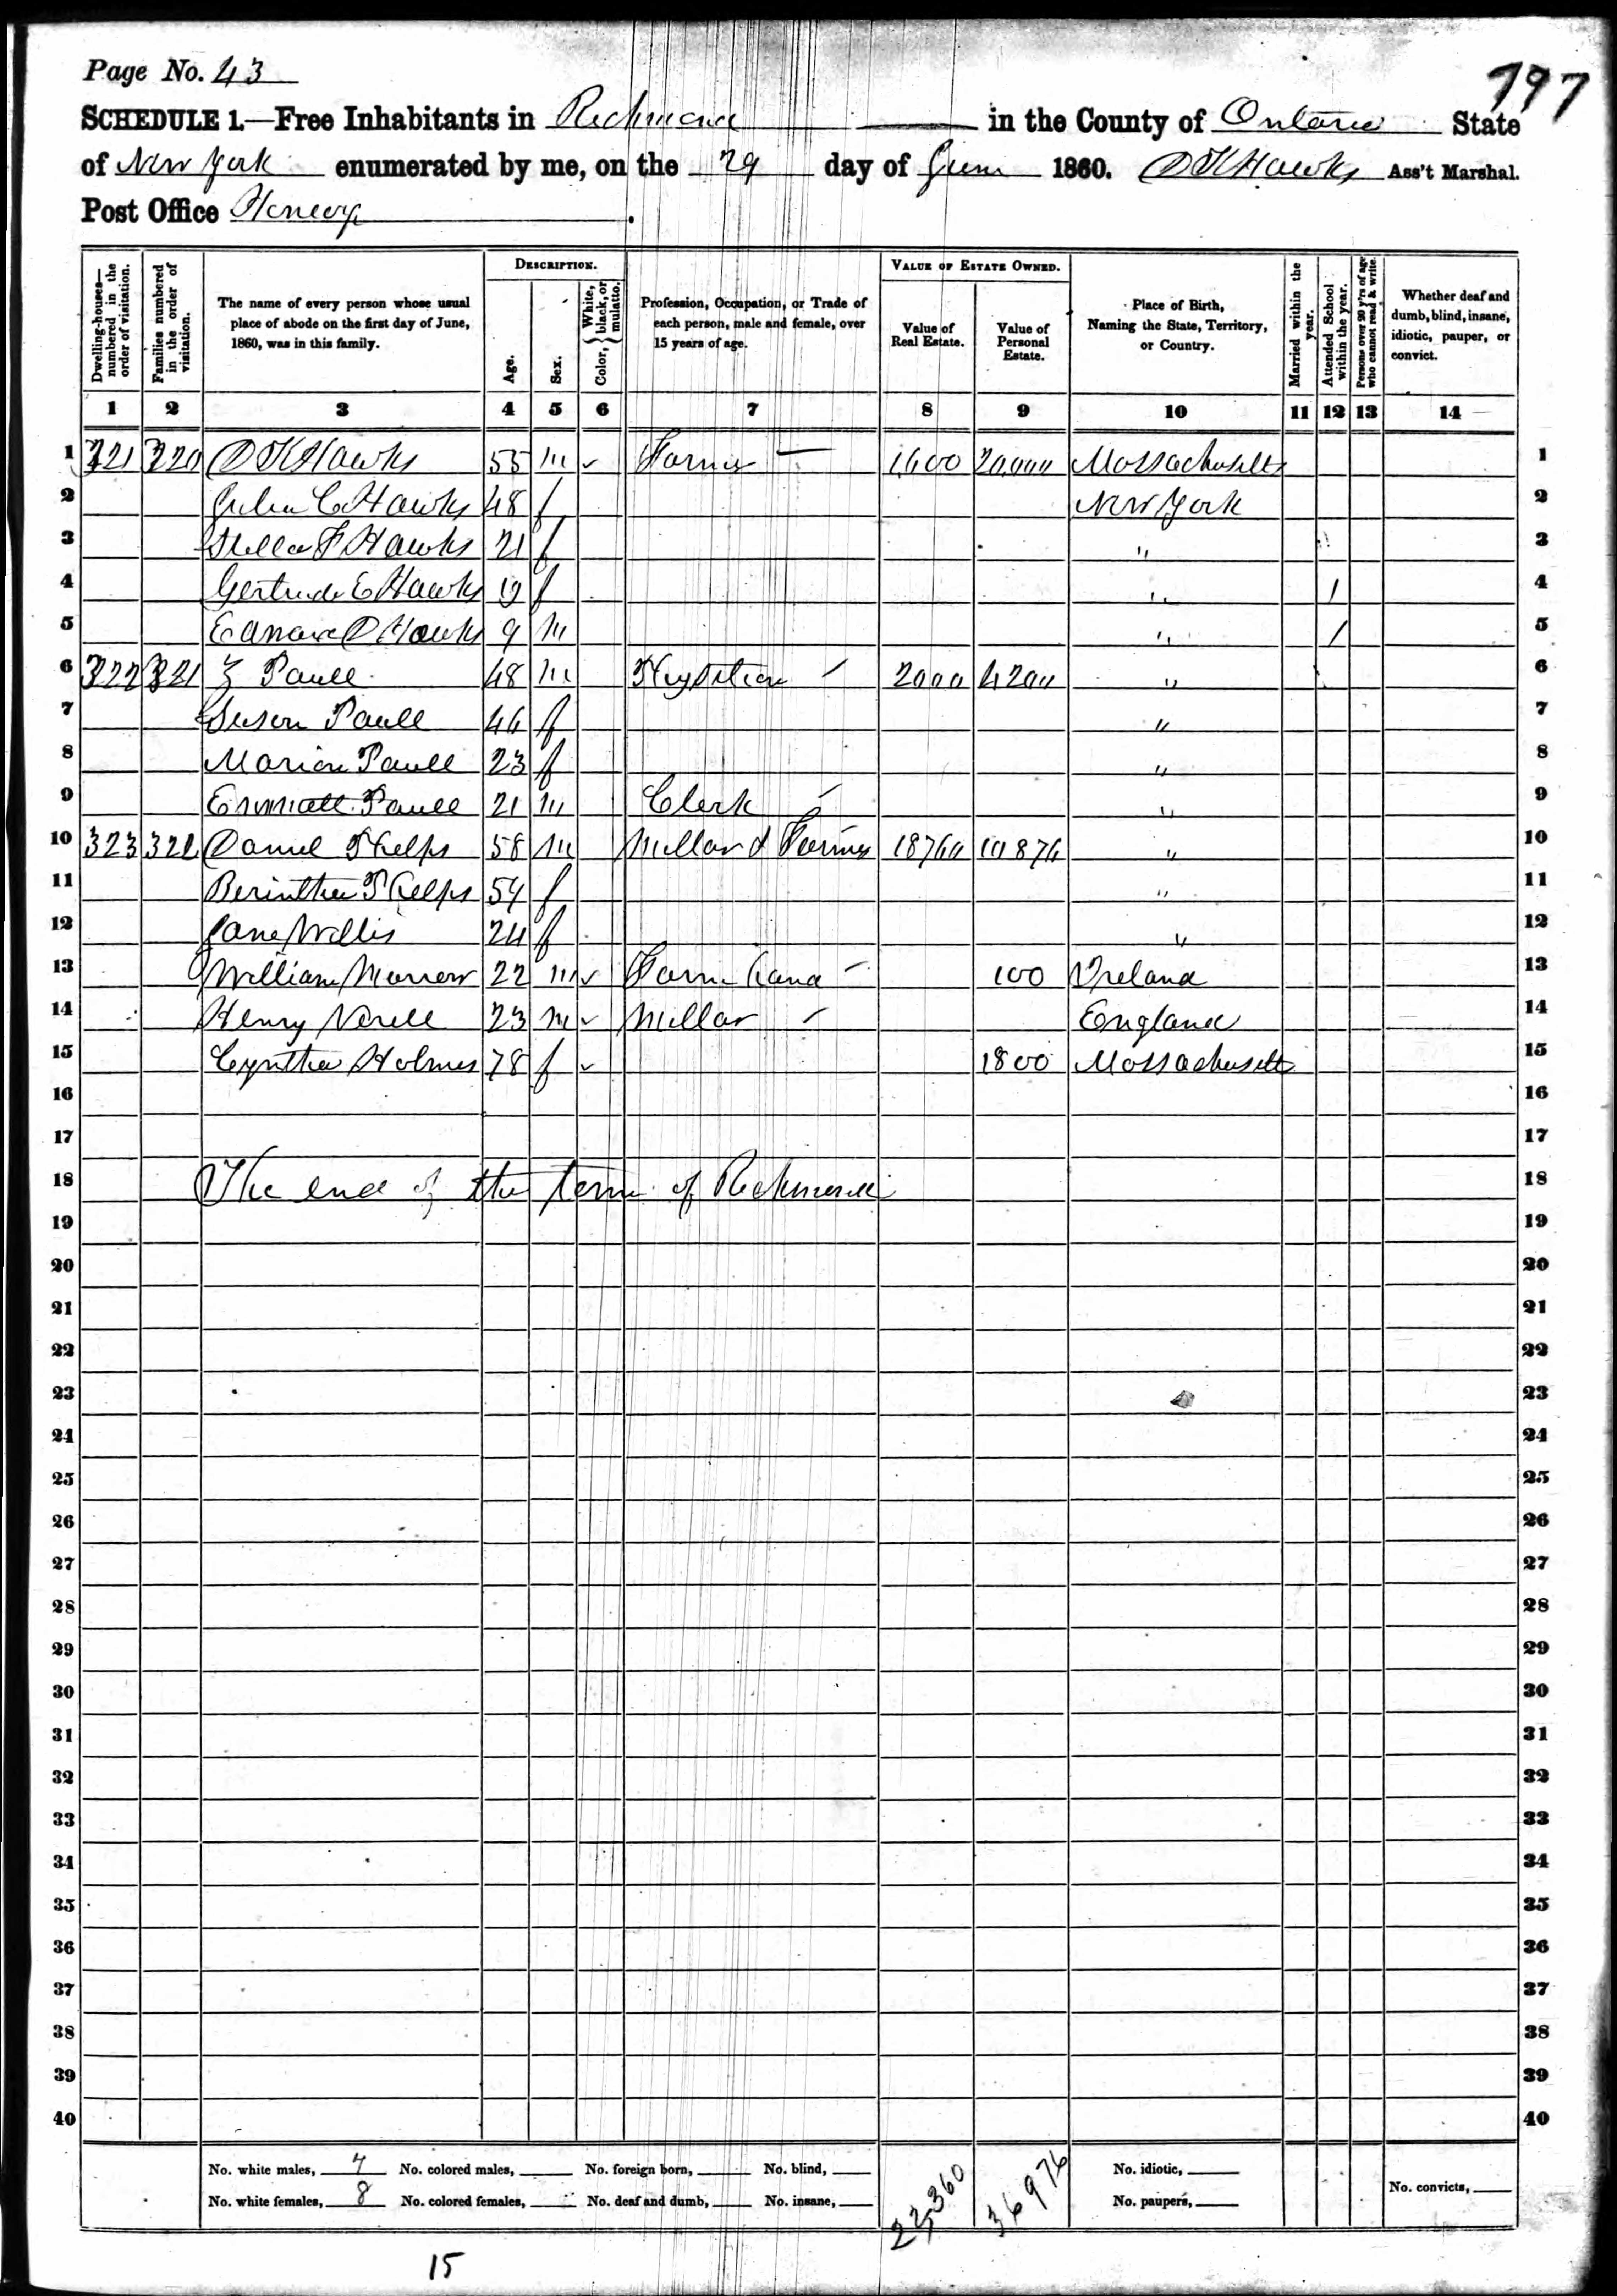 Page No. 43
797
SCHEDULE 1.—Free Inhabitants in Richmond in the County of Ontario State
of New York enumerated by me, on the 29 day of June 1860. O K Hawks Ass't Marshal.
Post Office Honeoye
Dwelling-houses—numbered in the order of visitation.
Families numbered in the order of visitation.
The name of every person whose usual place of abode on the first day of June, 1860, was in this family.
DESCRIPTION.
Age.
Sex.
Color, { White, black, or mulatto.
Profession, Occupation, or Trade of each person, male and female, over 15 years of age.
VALUE OF ESTATE OWNED.
Value of Real Estate.
Value of Personal Estate.
Place of Birth, Naming the State, Territory, or Country.
Married within the year.
Attended School within the year.
Persons over 20 y'rs of age who cannot read & write.
Whether deaf and dumb, blind, insane, idiotic, pauper, or convict.
1 2 3 4 5 6 7 8 9 10 11 12 13 14
1 321 320 O K Hawks 55 m ✓ Farmer — 1,600 20,000 Massachusetts 1
2 Julia C Hawks 48 f New York 2
3 Stella F Hawks 21 f " 3
4 Gertrude E Hawks 19 f " / 4
5 Edward O Hawks 9 m " / 5
6 322 321 Z Paull 48 m Physitian 2000 4200 " 6
7 Suson Paull 46 f " 7
8 Marion Paull 23 f " 8
9 Emmatt Paull 21 m Clerk " 9
10 323 322 Daniel Phelps 58 m Millar & Farmer 18760 10876 " 10
11 Berintha Phelps 54 f " 11
12 Jane Willis 24 f " 12
13 William Morrow 22 m ✓ Farm hand 100 Ireland 13
14 Henry 23 m ✓ Millar England 14
15 Cynthia Holmes 78 f ✓ 1800 Massachusetts 15
16 16
17 17
18 The end of the town of Richmond 18
19 19
20 20
21 21
22 22
23 23
24 24
25 25
26 26
27 27
28 28
29 29
30 30
31 31
32 32
33 33
34 34
35 35
36 36
37 37
38 38
39 39
40 40
No. white males, 7 No. colored males, No. foreign born, No. blind, 22,360 36976 No. idiotic,
No. white females, 8 No. colored females, No. deaf and dumb, No. insane, No. paupers, No. convicts,
15